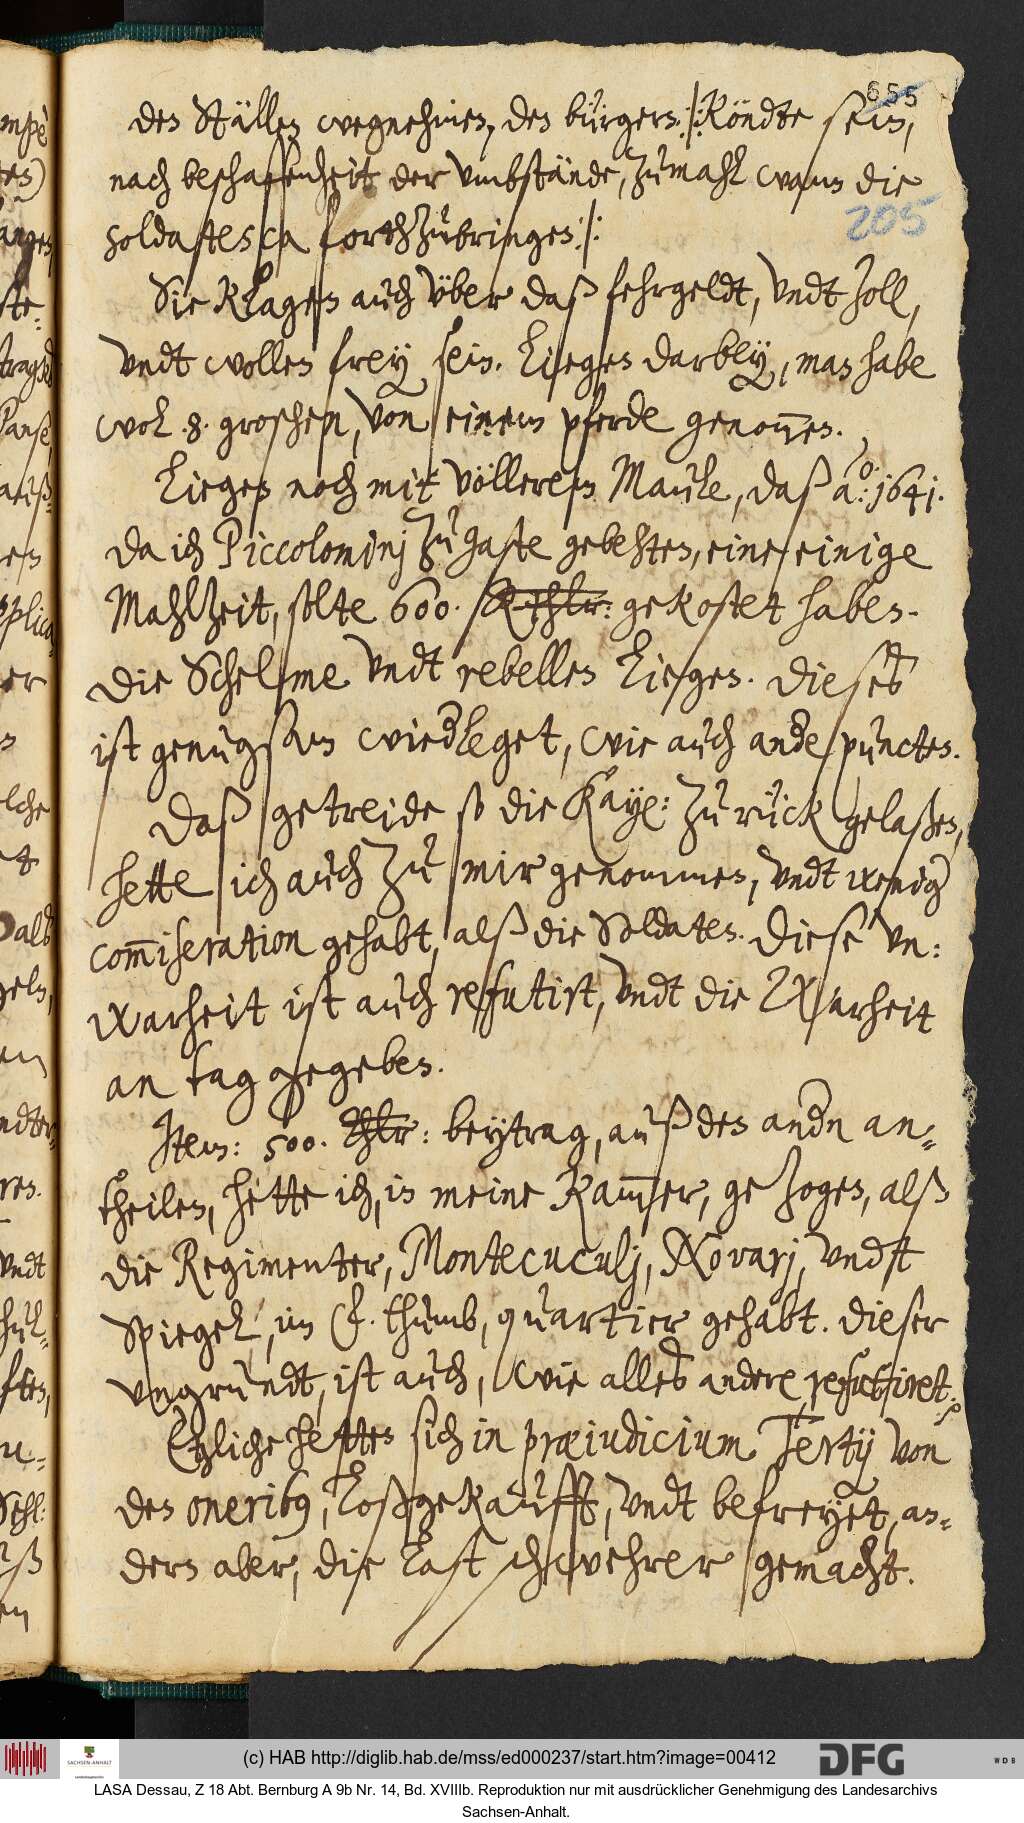 655
den Ställen wegnehmen, den bürgern :/: Köndte sein,
nach beschaffenheit der Umbstände, zumahl wann die
soldatesca forthzubringen :/:
205
Sie klagen auch über daß fehrgeldt, Undt Zoll,
Undt wollen frey sein. Liegen darbey, man habe
wol .8. groschen, von einem pferde genom̄en.
Liegen noch mit völlerem Maule, daß a:o 1641.
da ich Piccolominj zu gaste gebehten, eine einige
Mahlzeit, solte 600. Rthlr: gekostet haben.
Die Schelme Undt rebellen Liegen. Dieses
ist genugsam wiedleget, wie auch ande puncten.
Daß getreide so die Kayl: zu rück gelaßen,
hette ich auch zu mir genommen, Undt wenig
com̄iseration gehabt, alß die Soldaten. Diese Un:
warheit ist auch refutirt, Undt die Warheit
an tag gegeben.
Item: 500. Thlr: beytrag, auß den andn an-
theilen, hette ich, in meine Kam̄er, gezogen, alß
die Regimenter, Montecuculj, Novarj, Undt
Spiegel, im F. thumb, quartier gehabt. Dieser
Ungrundt, ist auch, wie alles andere refutiret.
Etzliche hetten sich in præiudicium Tertÿ von
den oneribus, Loßgekaufft, Undt befreyet, an-
dern aber, die Last schwehrer gemacht.
(c) HAB http://diglib.hab.de/mss/ed000237/start.htm?image=00412
SACHSEN-ANHALT
DFG
WDB
LASA Dessau, Z 18 Abt. Bernburg A 9b Nr. 14, Bd. XVIIIb. Reproduktion nur mit ausdrücklicher Genehmigung des Landesarchivs
Sachsen-Anhalt.